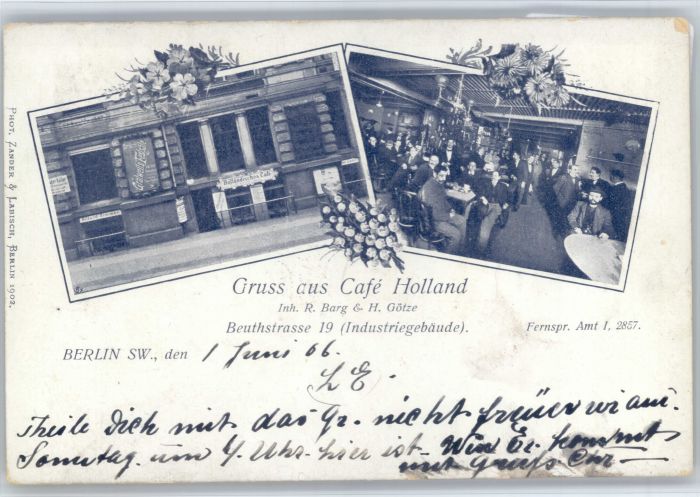 Holländisches Café
Gruss aus Café Holland
Inh. R. Barg & H. Götze
Beuthstrasse 19 (Industriegebäude).
Fernspr. Amt I, 2857.
BERLIN SW., den 1 Juni 06.
L E.
Theile Dich mit das Gr. nicht früher wie am
Sonntag um 4 Uhr hier ist. Win Er kommt
mit Gruß
PHOT. ZANDER & LABISCH, BERLIN 1902.